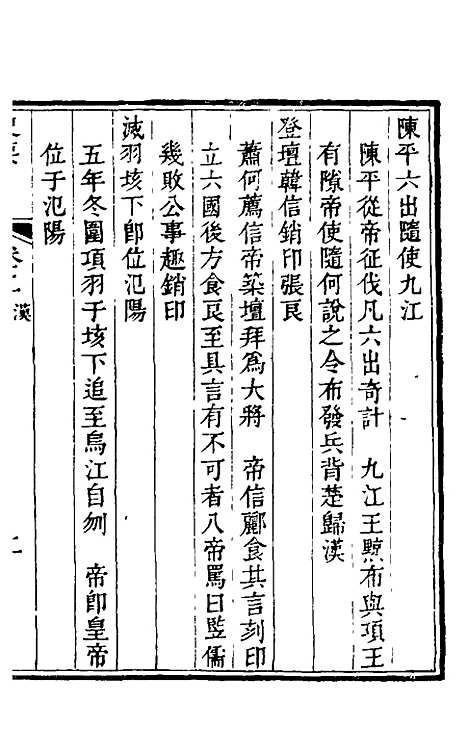 陳平六出隨使九江
陳平從帝征伐凡六出奇計　九江王黥布與項王
有隙帝使隨何說之令布發兵背楚歸漢
登壇韓信銷印張良
蕭何薦信帝築壇拜爲大將　帝信酈食其言刻印
立六國後方食良至具言有不可者八帝罵曰豎儒
幾敗公事趣銷印
滅羽垓下卽位氾陽
五年冬圍項羽于垓下追至烏江自刎　帝卽皇帝
位于氾陽
漢